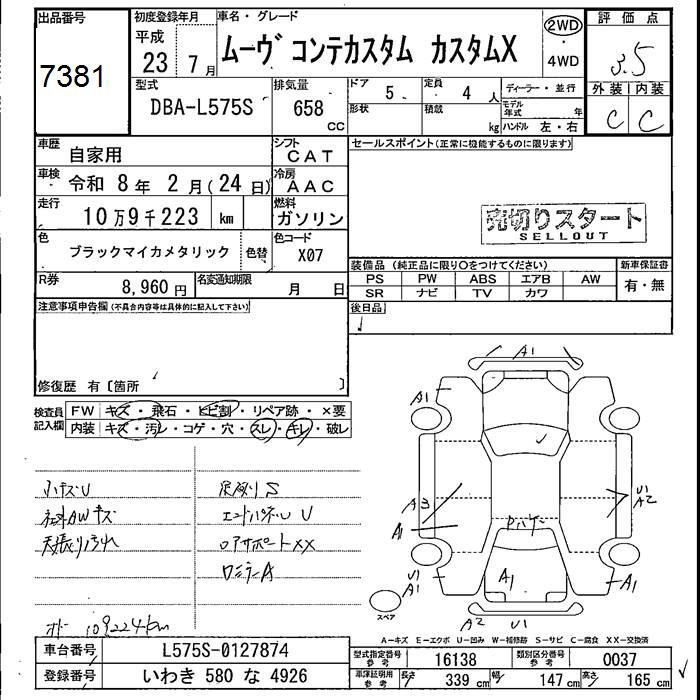 出品番号
7381
初度登録年月
平成
23 7月
車名・グレード
ムーヴ コンテカスタム カスタムX
2WD
・
4WD
評価点
3.5
外装 内装
C C
型式
DBA-L575S
排気量
658
CC
ドア
5
定員
4 人
形状
積載
kg
ディーラー・並行
モデル年式 年
ハンドル 左・右
車歴
自家用
シフト
CAT
車検
令和 8年 2月(24日)
冷房
AAC
走行
10万9千223 km
燃料
ガソリン
色
ブラックマイカメタリック
色替
色コード
X07
R券
8,960円
名変通知期限
月 日
セールスポイント(正常に機能するものに限ります)
売切りスタート
SELLOUT
装備品 (純正品に限り○をつけてください)
PS PW ABS エアB AW
SR ナビ TV カワ
新車保証書
有・無
後日品
注意事項申告欄(不具合内容等は具体的に記入して下さい)
修復歴 有〔箇所 〕
検査員
記入欄
FW キズ・飛石・ヒビ割・リペア跡・×要
内装 キズ・汚レ・コゲ・穴・スレ・キレ・破レ
小キズU
社外AWキズ
天張り汚れ
エンドパネルU
ロアサポートXX
ワミラーA
109224km
A1
A1
A3
A1
U1
A2
U1
A1
A1
A1
A2 U1
スペア
A−キズ E−エクボ U−凹み W−補修跡 S−サビ C−腐食 XX−交換済
車台番号
L575S-0127874
登録番号
いわき 580 な 4926
型式指定番号
参考
16138
類別区分番号
参考
0037
車庫証明用
参考
長さ 339 cm 幅 147 cm 高さ 165 cm